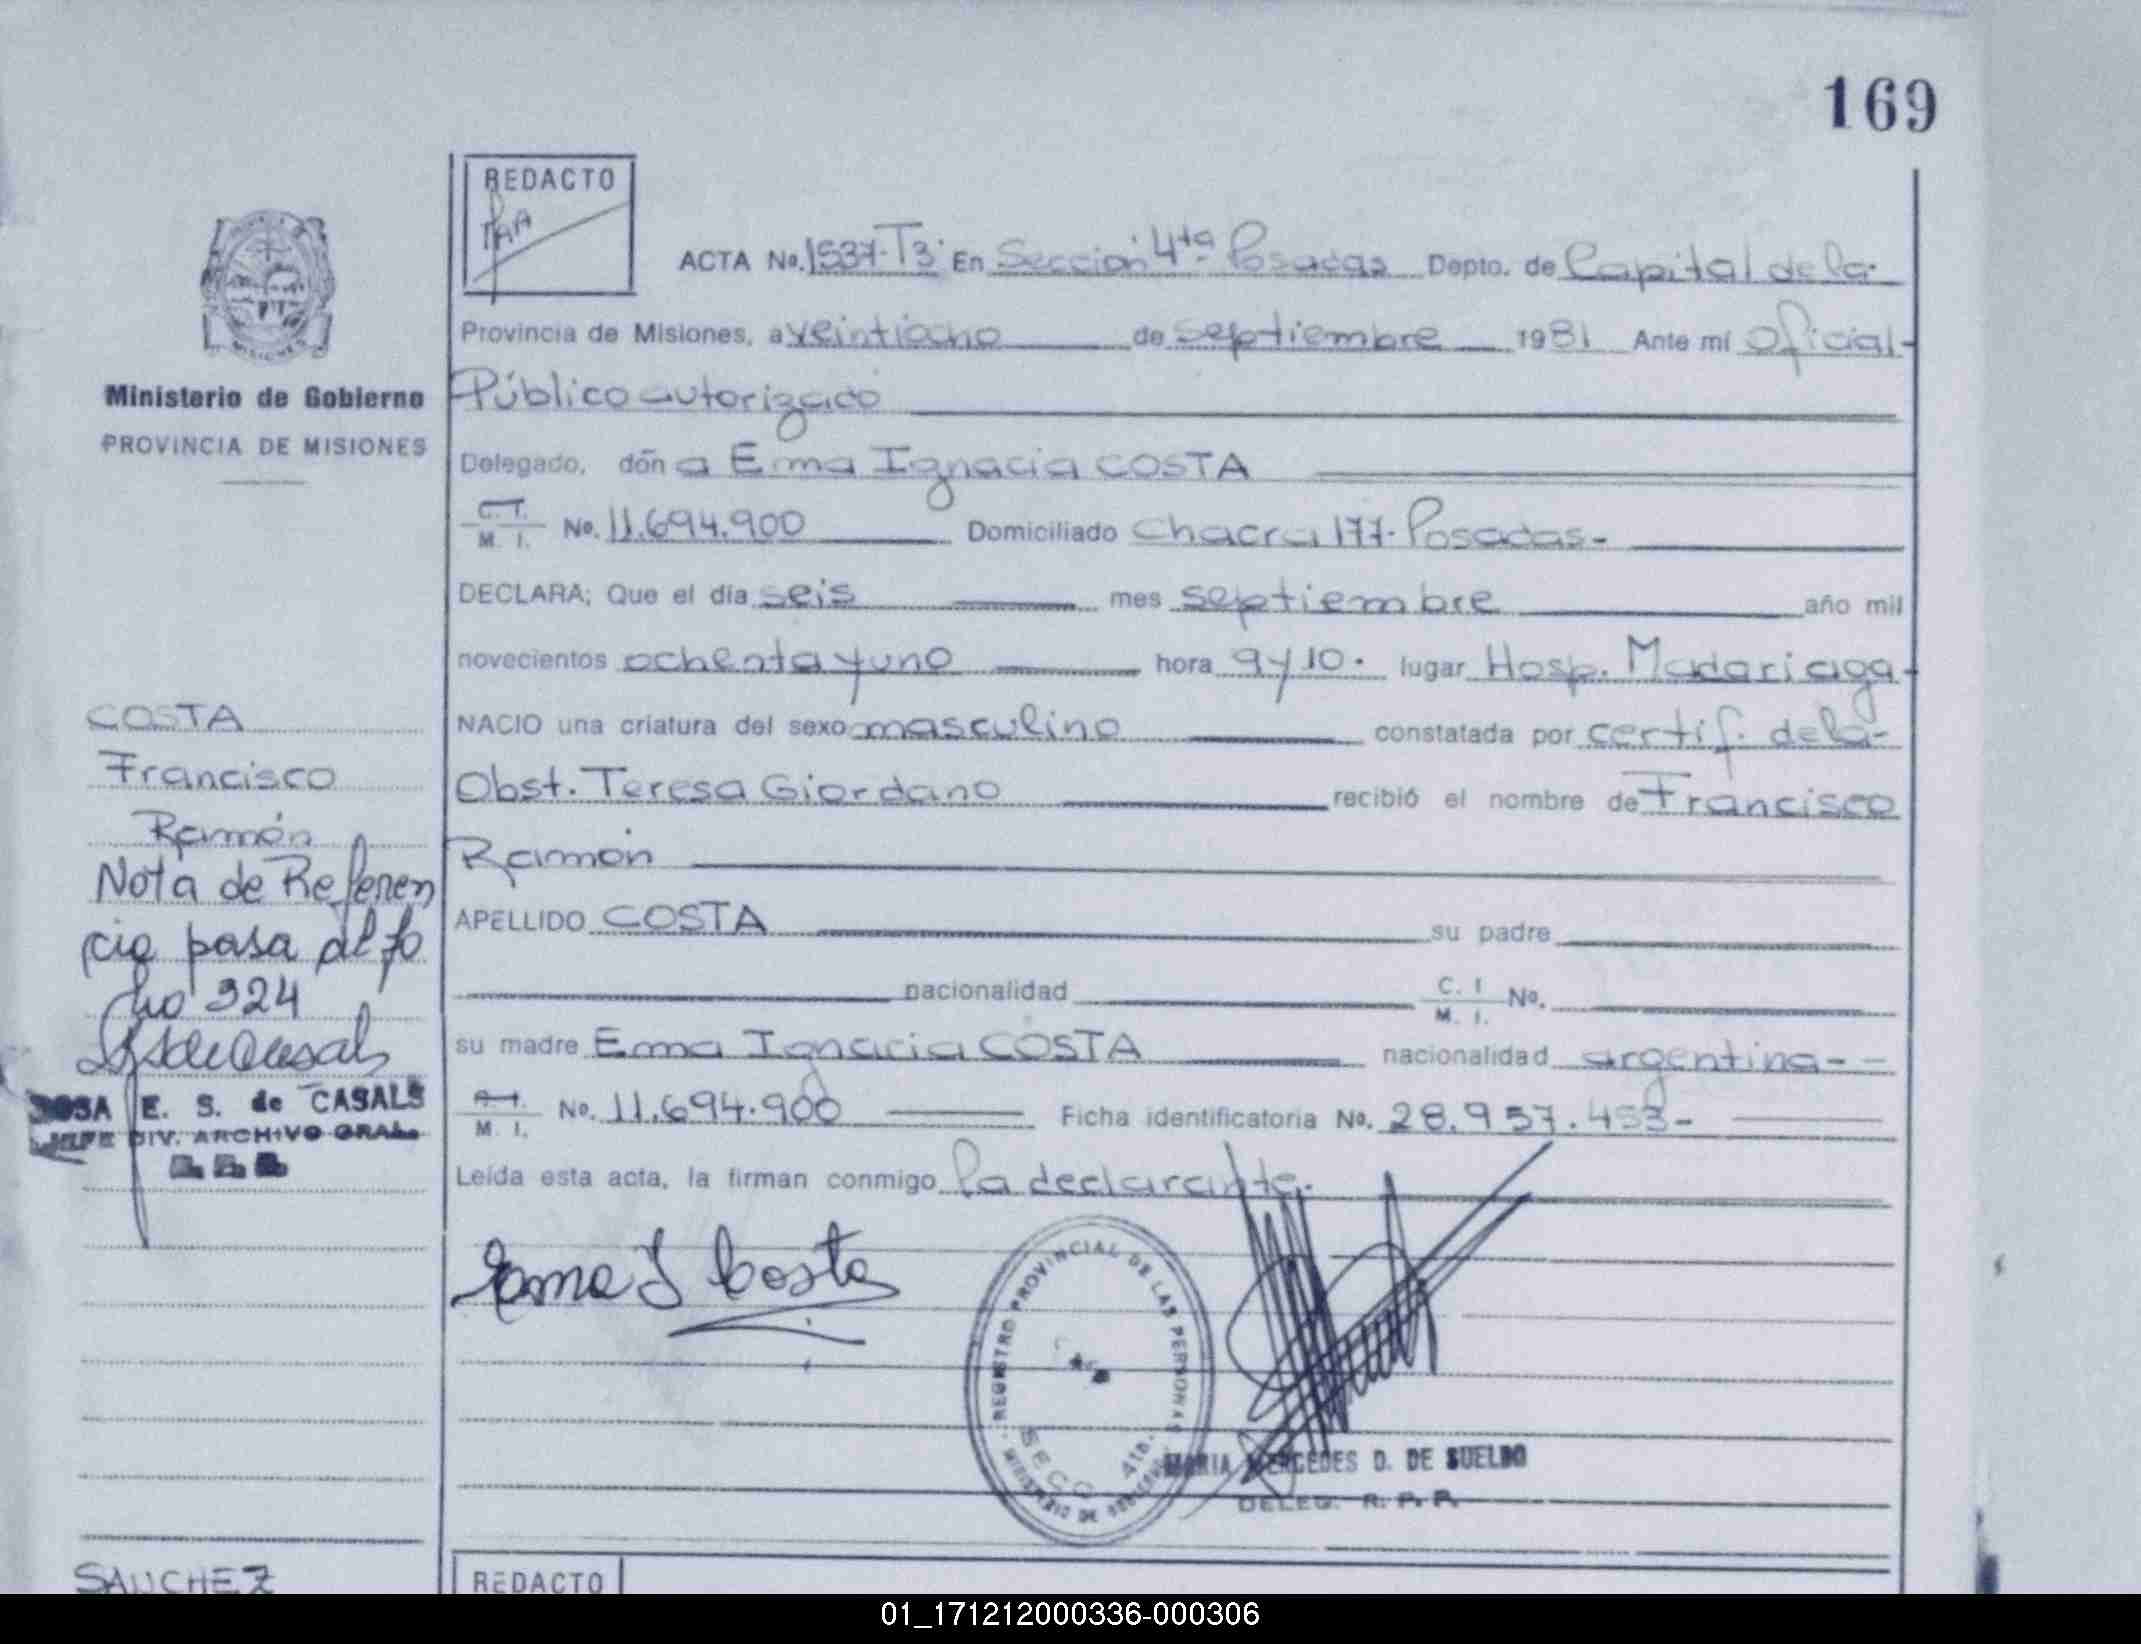 169
REDACTO
ACTA No. 1537-T3. En Sección 4ta Posadas Depto. de Capital de la
Provincia de Misiones, a veintiocho de septiembre 1981 Ante mí Oficial
Público autorizado
Delegado, don a Ema Ignacia COSTA
M. I. No. 11.694.900 Domiciliado Chacra 177-Posadas-
DECLARA; Que el día seis mes septiembre año mil
novecientos ochenta y uno hora 9 y 10. lugar Hosp. Madariaga
NACIO una criatura del sexo masculino constatada por certif. de la
Obst. Teresa Giordano recibió el nombre de Francisco
Ramón
APELLIDO COSTA su padre
nacionalidad C. I M. I. No.
su madre Ema Ignacia COSTA nacionalidad argentina--
M. I. No. 11.694.900 Ficha identificatoria No. 28.957.453-
Leída esta acta, la firman conmigo la declarante.
Ema I Costa
REGISTRO PROVINCIAL DE LAS PERSONAS
SECC 4ta.
MINISTERIO DE GOBIERNO
MARIA MERCEDES D. DE SUELDO
DELEG. R. P. P.
MISIONES
Ministerio de Gobierno
PROVINCIA DE MISIONES
COSTA
Francisco
Ramón
Nota de Referen
cia pasa al fo
lio 324
ROSA E. S. de CASALS
JEFE DIV. ARCHIVO GRAL.
SANCHEZ
REDACTO
01_171212000336-000306